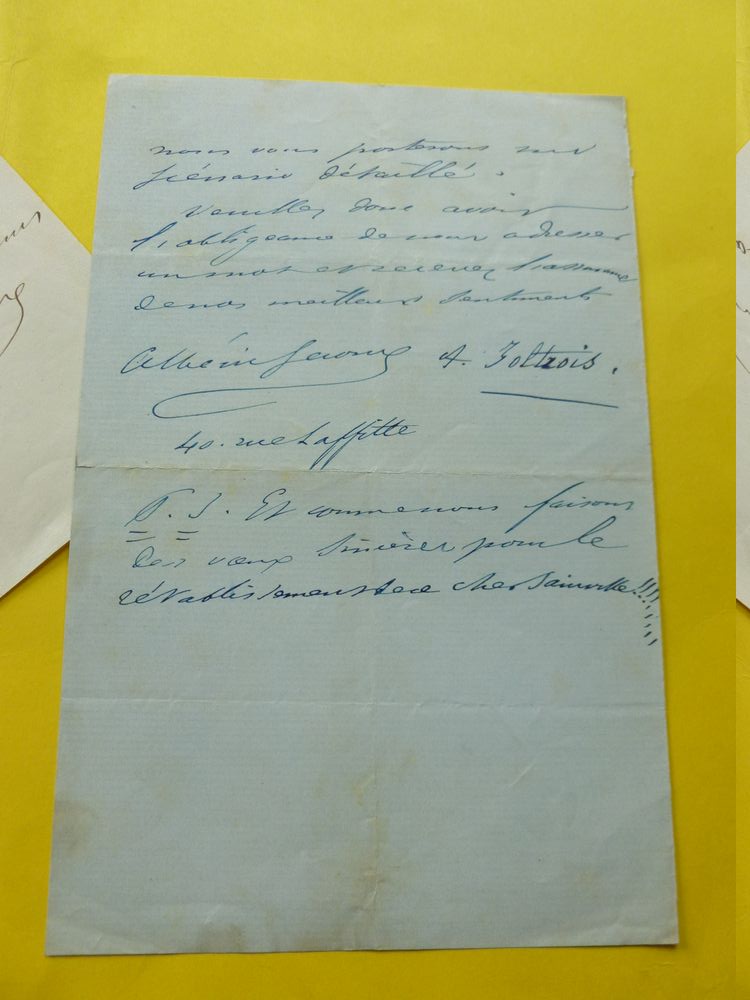 nous vous porterons un
scénario détaillé.
Veuillez donc avoir
l'obligeance de nous adresser
un mot et recevez l'assurance
de nos meilleurs sentiments
Albéric A. Foltrois.
40. rue Laffitte
P. S. Et comme nous faisons
des vœux sincères pour le
rétablissement de ce cher Sainville!!!!